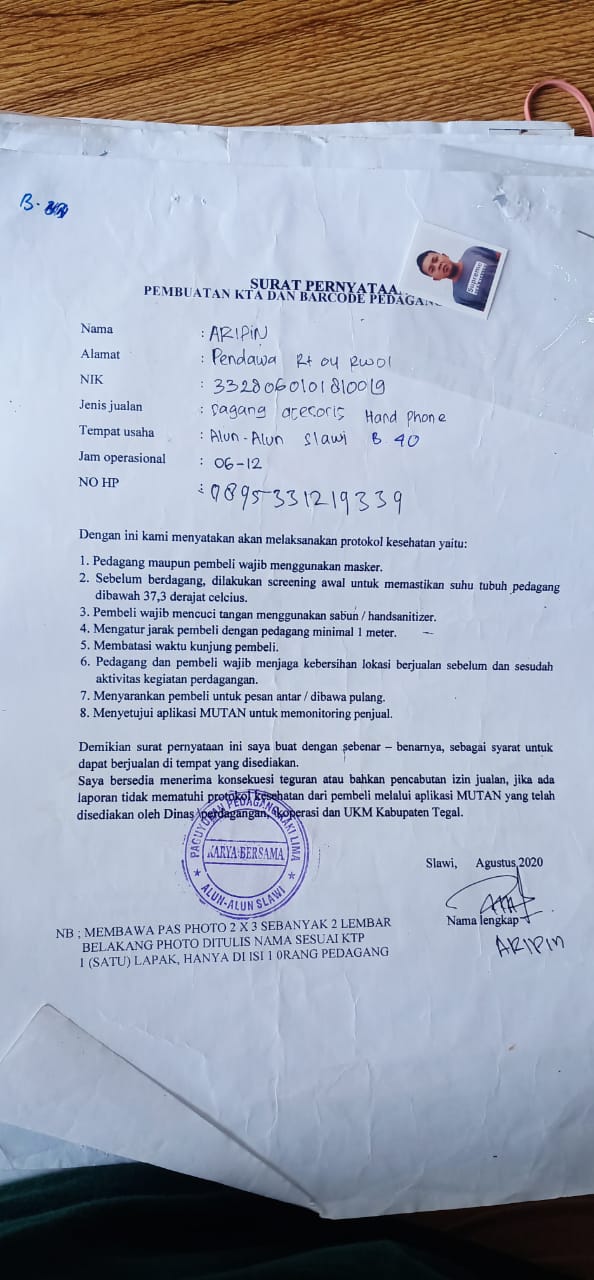 B-
SURAT PERNYATAA
PEMBUATAN KTA DAN BARCODE PEDAGANG
Nama : ARIPIN
Alamat : Pendawa Rt 04 RW01
NIK : 3328060101810019
Jenis jualan : Dagang acecoris Hand Phone
Tempat usaha : Alun-Alun Slawi B 40
Jam operasional : 06-12
NO HP : 0895331219339
Dengan ini kami menyatakan akan melaksanakan protokol kesehatan yaitu:
1. Pedagang maupun pembeli wajib menggunakan masker.
2. Sebelum berdagang, dilakukan screening awal untuk memastikan suhu tubuh pedagang
dibawah 37,3 derajat celcius.
3. Pembeli wajib mencuci tangan menggunakan sabun / handsanitizer.
4. Mengatur jarak pembeli dengan pedagang minimal 1 meter.
5. Membatasi waktu kunjung pembeli.
6. Pedagang dan pembeli wajib menjaga kebersihan lokasi berjualan sebelum dan sesudah
aktivitas kegiatan perdagangan.
7. Menyarankan pembeli untuk pesan antar / dibawa pulang.
8. Menyetujui aplikasi MUTAN untuk memonitoring penjual.
Demikian surat pernyataan ini saya buat dengan sebenar – benarnya, sebagai syarat untuk
dapat berjualan di tempat yang disediakan.
Saya bersedia menerima konsekuesi teguran atau bahkan pencabutan izin jualan, jika ada
laporan tidak mematuhi protokol kesehatan dari pembeli melalui aplikasi MUTAN yang telah
disediakan oleh Dinas perdagangan, koperasi dan UKM Kabupaten Tegal.
PAGUYUBAN PEDAGANG KAKI LIMA
KARYA BERSAMA
ALUN-ALUN SLAWI
Slawi, Agustus 2020
Nama lengkap
ARIPIN
NB ; MEMBAWA PAS PHOTO 2 X 3 SEBANYAK 2 LEMBAR
BELAKANG PHOTO DITULIS NAMA SESUAI KTP
1 (SATU) LAPAK, HANYA DI ISI 1 0RANG PEDAGANG